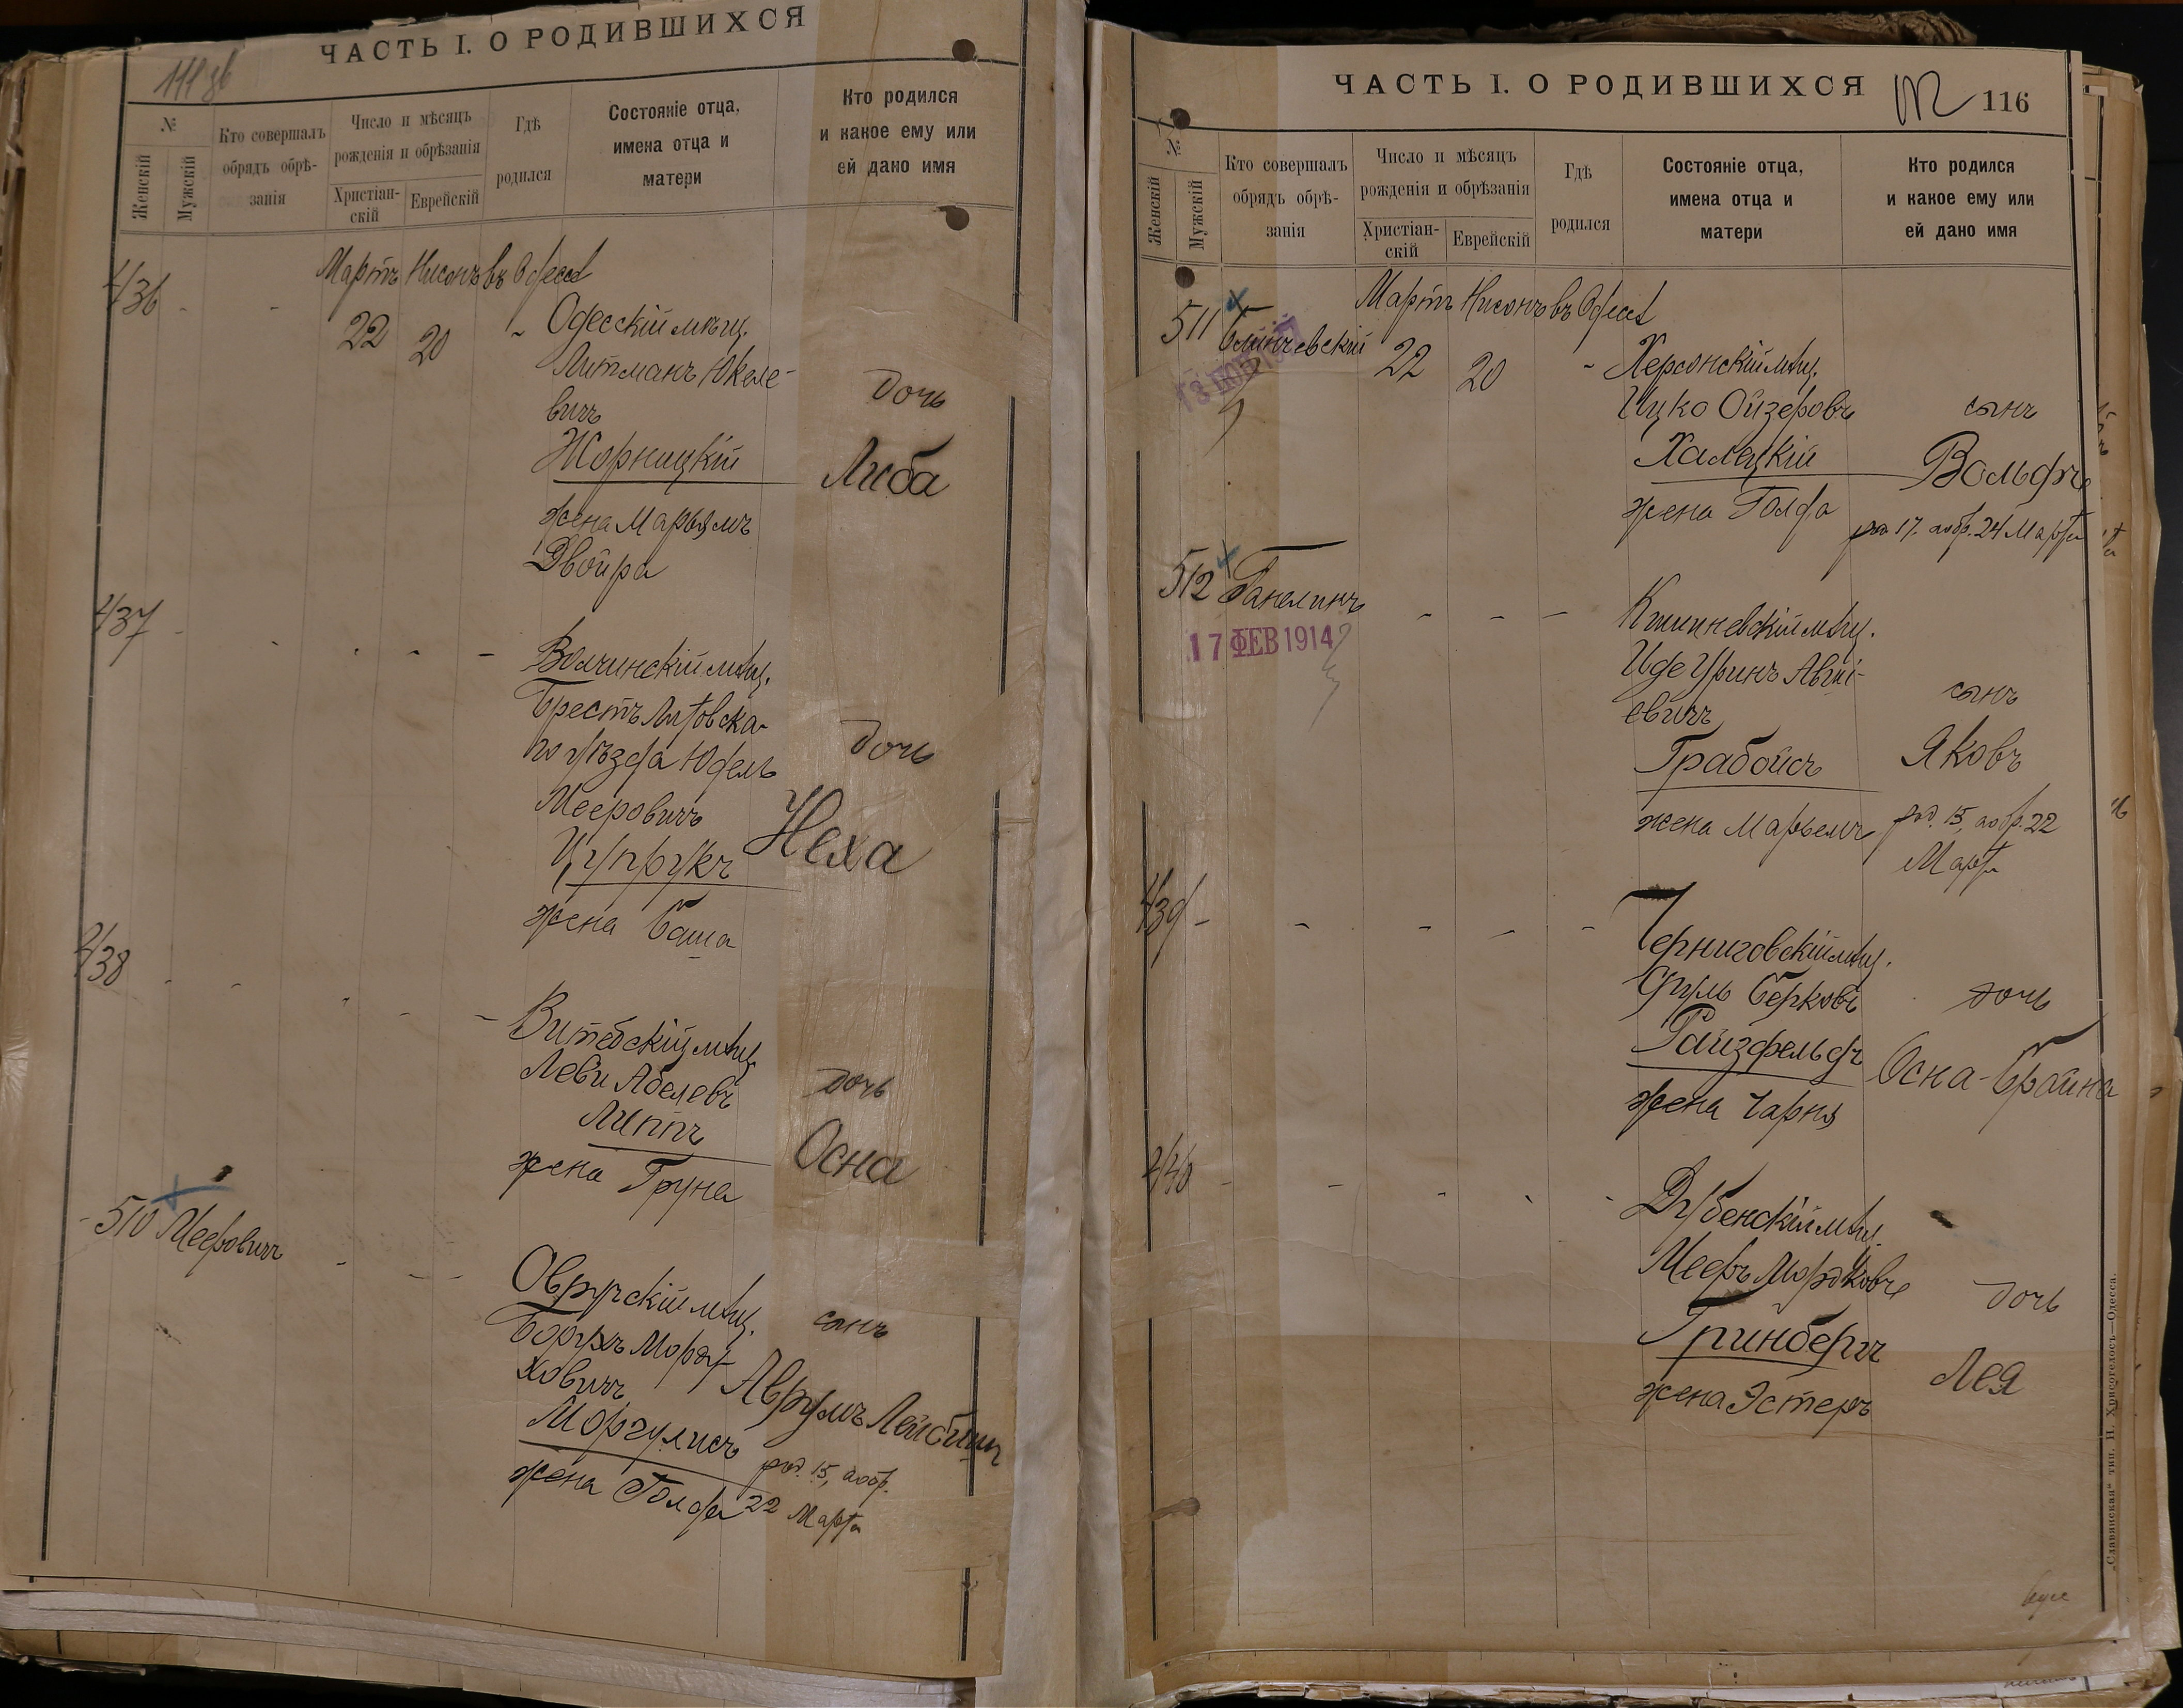 ЧАСТЬ I. О РОДИВШИХСЯ
№
Женскій
Мужскій
Кто совершалъ
обрядъ обрѣ-
занія
Число и мѣсяцъ
рожденія и обрѣзанія
Христіан-
скій
Еврейскій
Гдѣ
родился
Состояніе отца,
имена отца и
матери
Кто родился
и какое ему или
ей дано имя
Мартъ Нисонъ въ Одессѣ
436 - - 22 20 - Одесскій мѣщ.
Литманъ Юкеле-
вичъ
дочь
Жорницкій
Либа
жена Марьямъ
Двойра
437 - - - - - Волчинскій мѣщ.
Брестъ Литовска-
го уѣзда Юдель
дочь
Мееровичъ
Цупрукъ
Неха
жена Баша
438 - - - - Витебскій мѣщ.
Леви Абелевъ
дочь
Липпъ
Осна
жена Груна
- 510 Мееровичъ - - - Овручскій мѣщ.
сынъ
Борухъ Морду-
ховичъ
Аврумъ Лейб
Моргулисъ
род. 15, а обр.
жена Голда
22 Марта
ЧАСТЬ I. О РОДИВШИХСЯ
116
№
Женскій
Мужскій
Кто совершалъ
обрядъ обрѣ-
занія
Число и мѣсяцъ
рожденія и обрѣзанія
Христіан-
скій
Еврейскій
Гдѣ
родился
Состояніе отца,
имена отца и
матери
Кто родился
и какое ему или
ей дано имя
Мартъ Нисонъ въ Одессѣ
511 Блинчевскій 22 20 - Херсонскій мѣщ.
Ицко Ойзеровъ
сынъ
Халецкій
Вольфъ
жена Голда
17, а обр. 24 Марта
512 Ганелинъ - - - Кишиневскій мѣщ.
17 ФЕВ 1914
Иде Уринъ
евичъ
сынъ
Грабойсъ
Яковъ
жена Марьемъ
род. 15, а обр. 22
Марта
439 - - - - - Черниговскій мѣщ.
Берковъ
дочь
Райзфельдъ
Осна-Брайна
жена Чарня
440 - - - - - Дубенскій мѣщ.
Мееръ Мордковъ
дочь
Гринбергъ
Лея
жена Эстеръ
„Славянская“ тип. Н. Хрисогелосъ—Одесса.